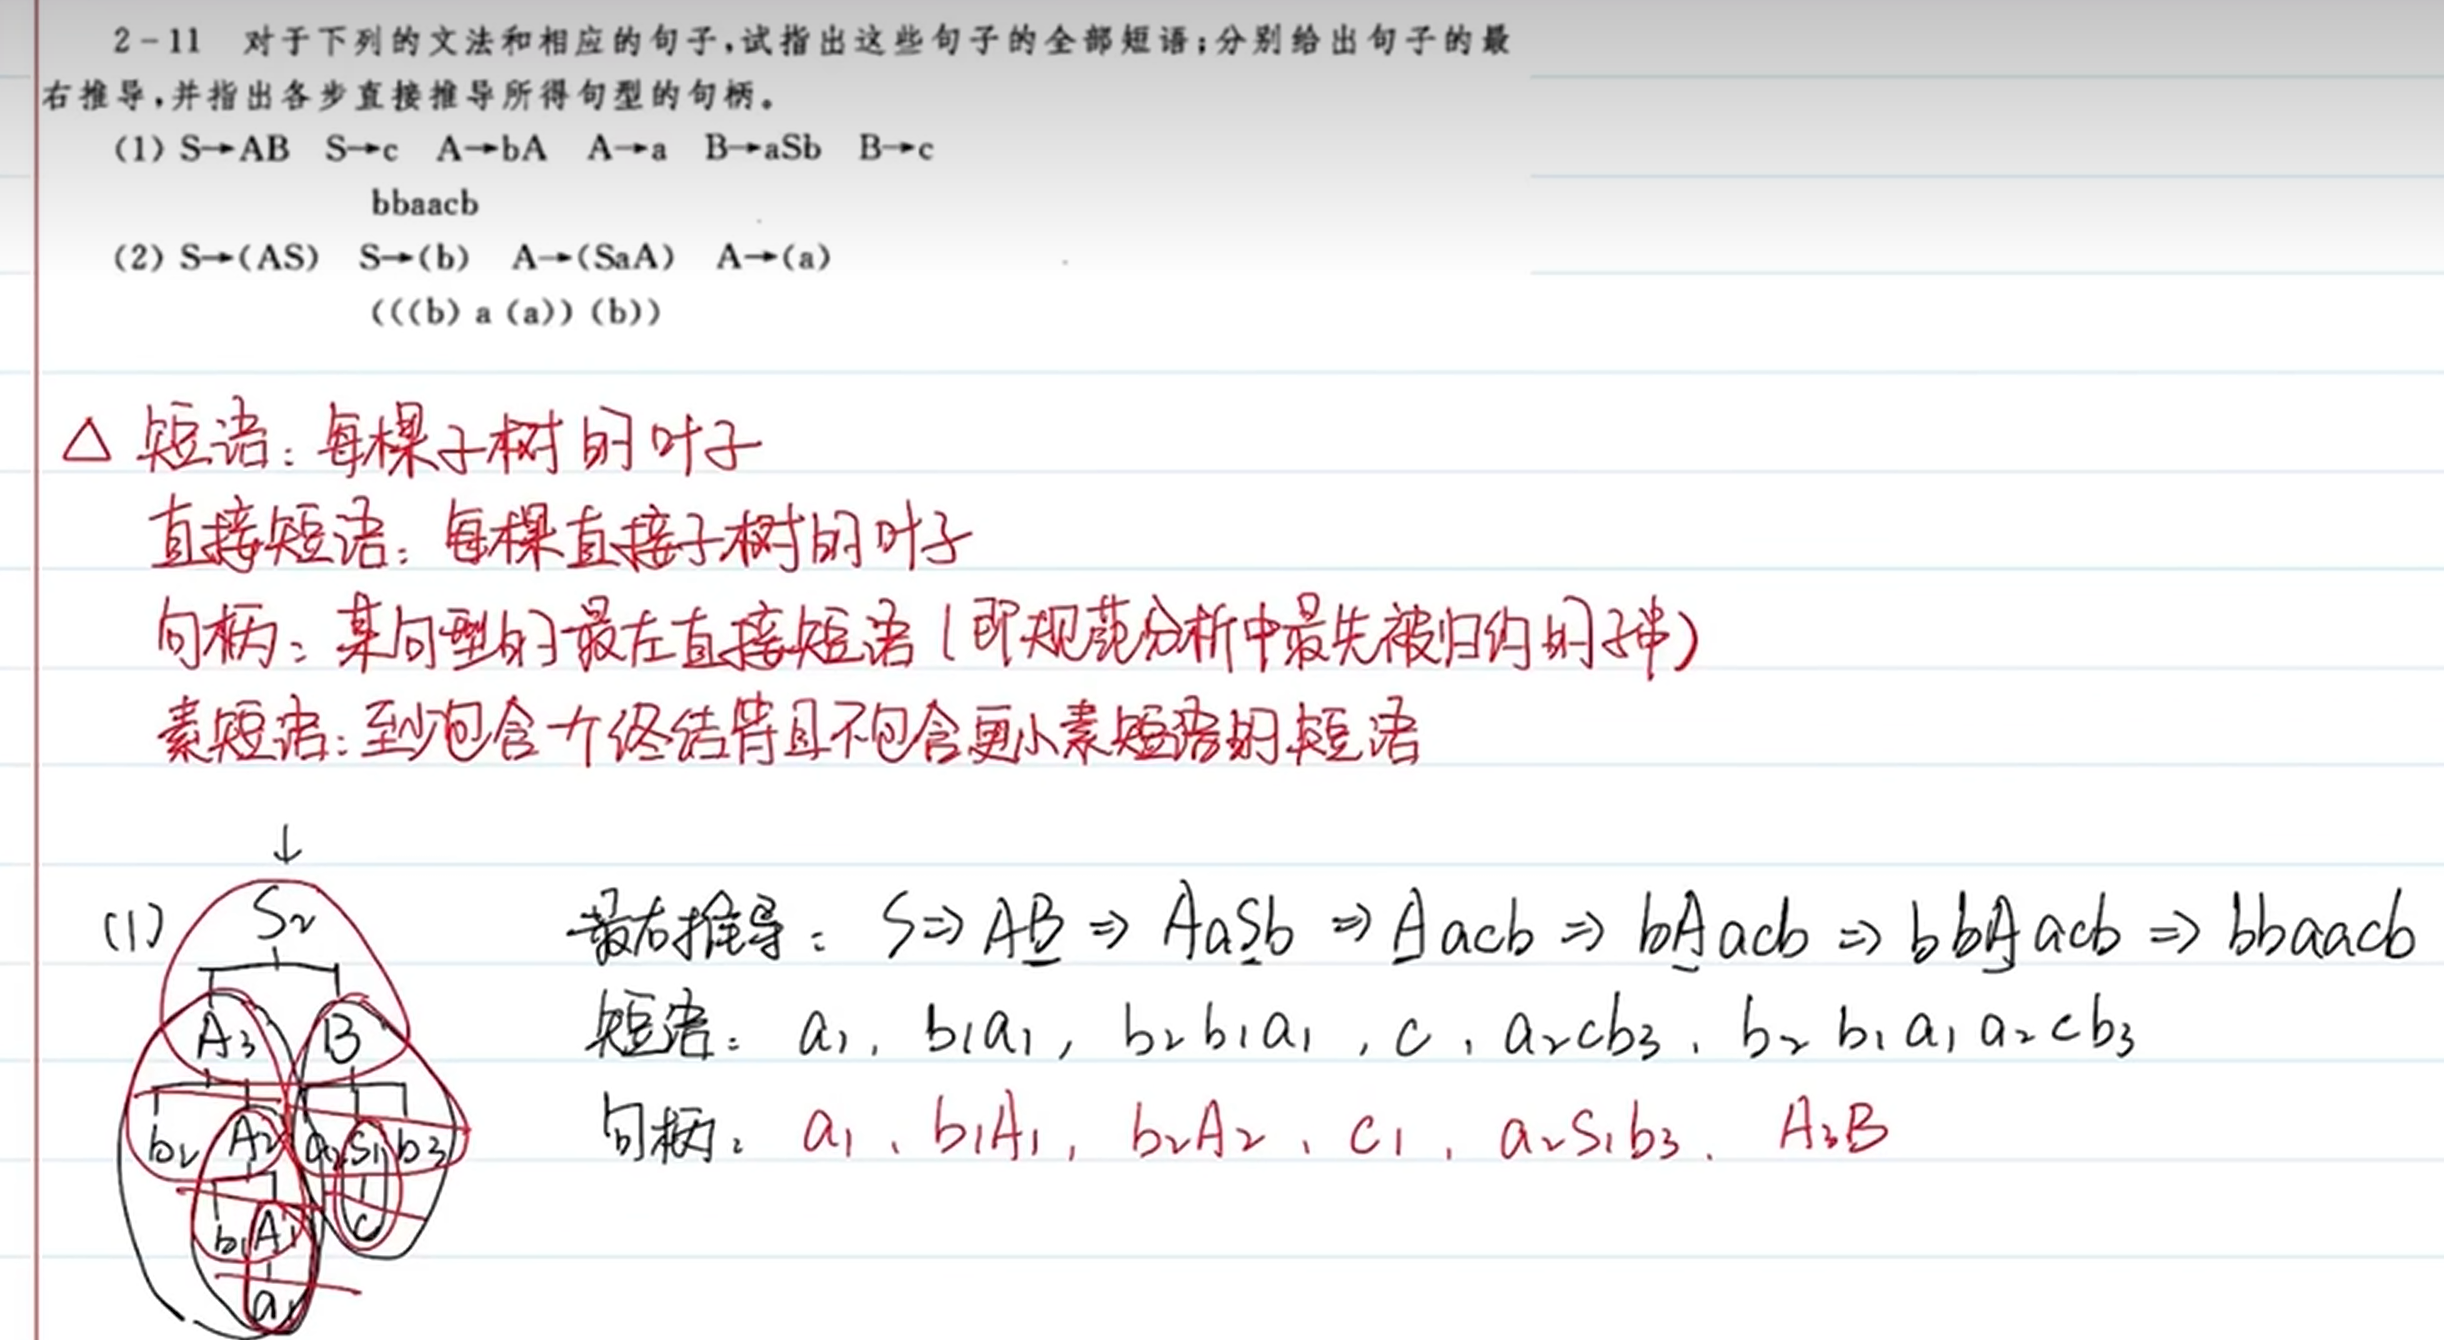 2-11 对于下列的文法和相应的句子,试指出这些句子的全部短语;分别给出句子的最
右推导,并指出各步直接推导所得句型的句柄。
(1) S→AB S→c A→bA A→a B→aSb B→c
bbaacb
(2) S→(AS) S→(b) A→(SaA) A→(a)
(((b) a (a)) (b))
△ 短语: 每棵子树的叶子
直接短语: 每棵直接子树的叶子
句柄: 某句型的最左直接短语(即规范分析中最先被归约的子串)
素短语: 至少包含一个终结符且不包含更小素短语的短语
↓
(1) S₂
A₃ B
b₂ A₂ a₂ S₁ b₃
b₁ A₁ c
a₁
最右推导: S⇒AB⇒AaSb⇒Aacb⇒bAacb⇒bbAacb⇒bbaacb
短语: a₁, b₁a₁, b₂b₁a₁, c, a₂cb₃, b₂b₁a₁a₂cb₃
句柄: a₁、b₁A₁, b₂A₂、c₁, a₂S₁b₃. A₃B